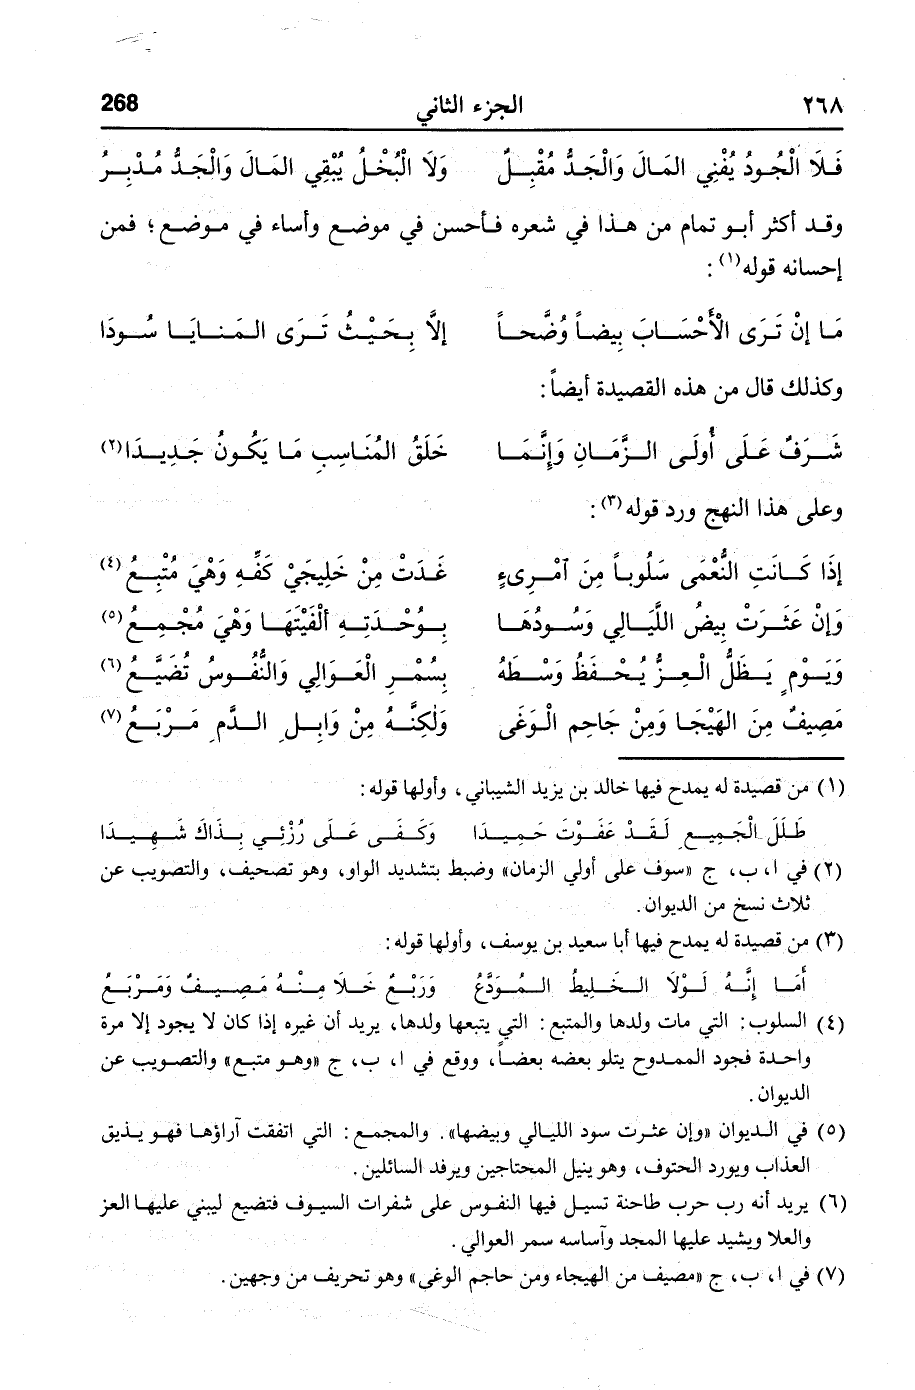 ٢٦٨ الجزء الثاني 268
فَلَا الْجُودُ يُفْنِي المَالَ وَالْجَدُّ مُقْبِلٌ وَلَا الْبُخْلُ يُبْقِي المَالَ وَالْجَدُّ مُدْبِرُ
وقد أكثر أبو تمام من هذا في شعره فأحسن في موضع وأساء في موضع؛ فمن
إحسانه قوله(١):
مَا إِنْ تَرَى الْأَحْسَابَ بِيضاً وُضَّحاً إلَّا بِحَيْثُ تَرَى المَنايَا سُودَا
وكذلك قال من هذه القصيدة أيضاً:
شَرَفٌ عَلَى أُولَى الزَّمَانِ وَإِنَّمَا خَلَقُ المُنَاسِبِ مَا يَكُونُ جَدِيدَا(٢)
وعلى هذا النهج ورد قوله(٣):
إذَا كَانَتِ النُّعْمَى سَلُوباً مِنَ آمْرِىءٍ غَدَتْ مِنْ خَلِيجَيْ كَفِّهِ وَهْيَ مُتْبِعُ(٤)
وَإِنْ عَثَرَتْ بِيضُ اللَّيَالِي وَسُودُهَا بِوُحْدَتِهِ ألْفَيْتَهَا وَهْيَ مُجْمِعُ(٥)
وَيَوْمٍ يَظَلُّ الْعِزُّ يُحْفَظُ وَسْطَهُ بِسُمْرِ الْعَوَالِي وَالنُّفُوسُ تُضَيَّعُ(٦)
مَصِيفٌ مِنَ الهَيْجَا وَمِنْ جَاحِمِ الْوَغَى وَلٰكِنَّهُ مِنْ وَابِلِ الدَّمِ مَرْبَعُ(٧)
(١) من قصيدة له يمدح فيها خالد بن يزيد الشيباني، وأولها قوله:
طَلَلَ الْجَمِيعِ لَقَدْ عَفَوْتَ حَمِيدَا وَكَفَى عَلَى رُزْئِي بِذَاكَ شَهِيدَا
(٢) في ا، ب، ج «سوف على أولي الزمان» وضبط بتشديد الواو، وهو تصحيف، والتصويب عن
ثلاث نسخ من الديوان.
(٣) من قصيدة له يمدح فيها أبا سعيد بن يوسف، وأولها قوله:
أَمَا إِنَّهُ لَوْلَا الخَلِيطُ المُوَدَّعُ وَرَبْعٌ خَلَا مِنْهُ مَصِيفٌ وَمَرْبَعُ
(٤) السلوب: التي مات ولدها والمتبع: التي يتبعها ولدها، يريد أن غيره إذا كان لا يجود إلا مرة
واحدة فجود الممدوح يتلو بعضه بعضاً، ووقع في ا، ب، ج «وهو متبع» والتصويب عن
الديوان.
(٥) في الديوان «وإن عثرت سود الليالي وبيضها». والمجمع: التي اتفقت آراؤها فهو يذيق
العذاب ويورد الحتوف، وهو ينيل المحتاجين ويرفد السائلين.
(٦) يريد أنه رب حرب طاحنة تسيل فيها النفوس على شفرات السيوف فتضيع ليبني عليها العز
والعلا ويشيد عليها المجد وأساسه سمر العوالي.
(٧) في ا، ب، ج «مصيف من الهيجاء ومن حاجم الوغى» وهو تحريف من وجهين.